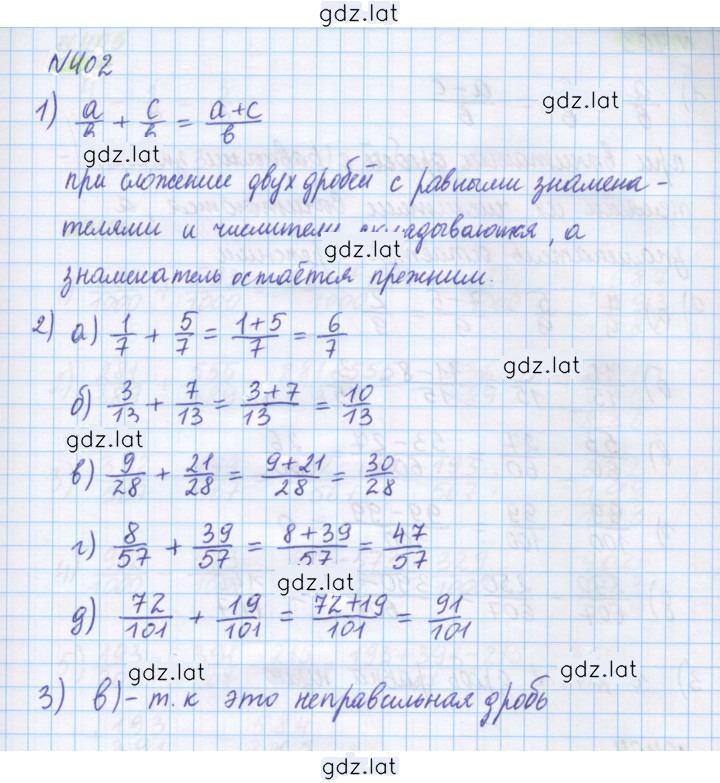 gdz.lat
№402
gdz.lat
1) a/b + c/b = a+c/b
gdz.lat
при сложение двух дробей с равными знамена-
телями и числители складываются, а
gdz.lat
знаменатель остаётся прежним.
2) а) 1/7 + 5/7 = 1+5/7 = 6/7
gdz.lat
б) 3/13 + 7/13 = 3+7/13 = 10/13
gdz.lat
в) 9/28 + 21/28 = 9+21/28 = 30/28
г) 8/57 + 39/57 = 8+39/57 = 47/57
gdz.lat
д) 72/101 + 19/101 = 72+19/101 = 91/101
gdz.lat
gdz.lat
3) в) - т.к это неправильная дробь
gdz.lat